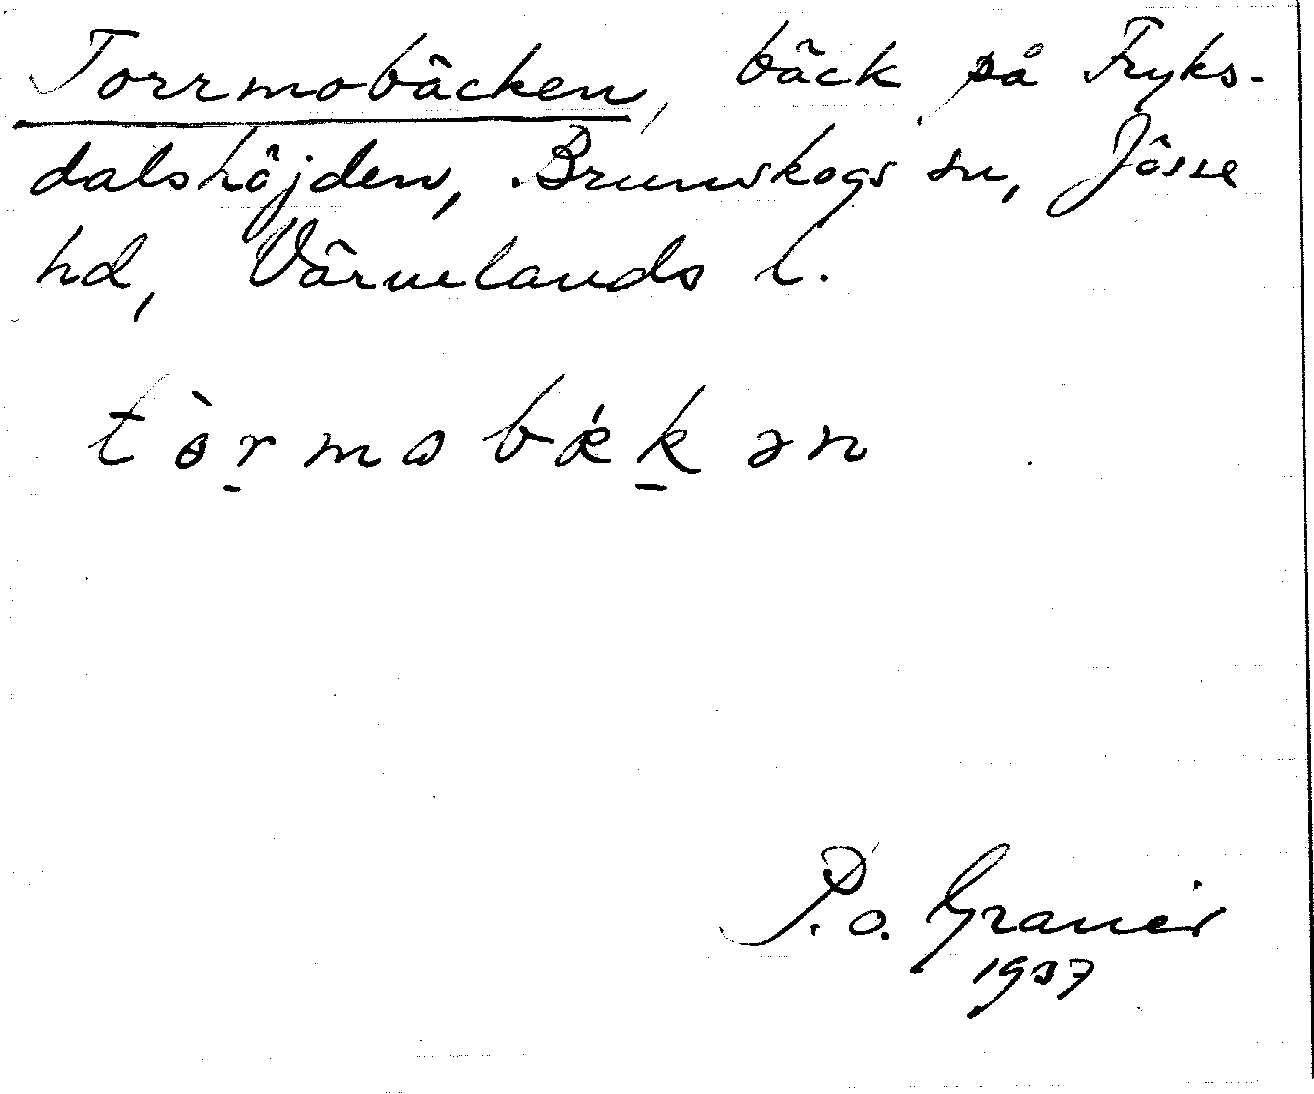 Torrmobäcken, bäck på Fryks-
dalshöjden, Brunskogs sn, Jösse
hd, Värmlands l.
tòr̠mωbǽk̠ən
P. o. Granér
1937